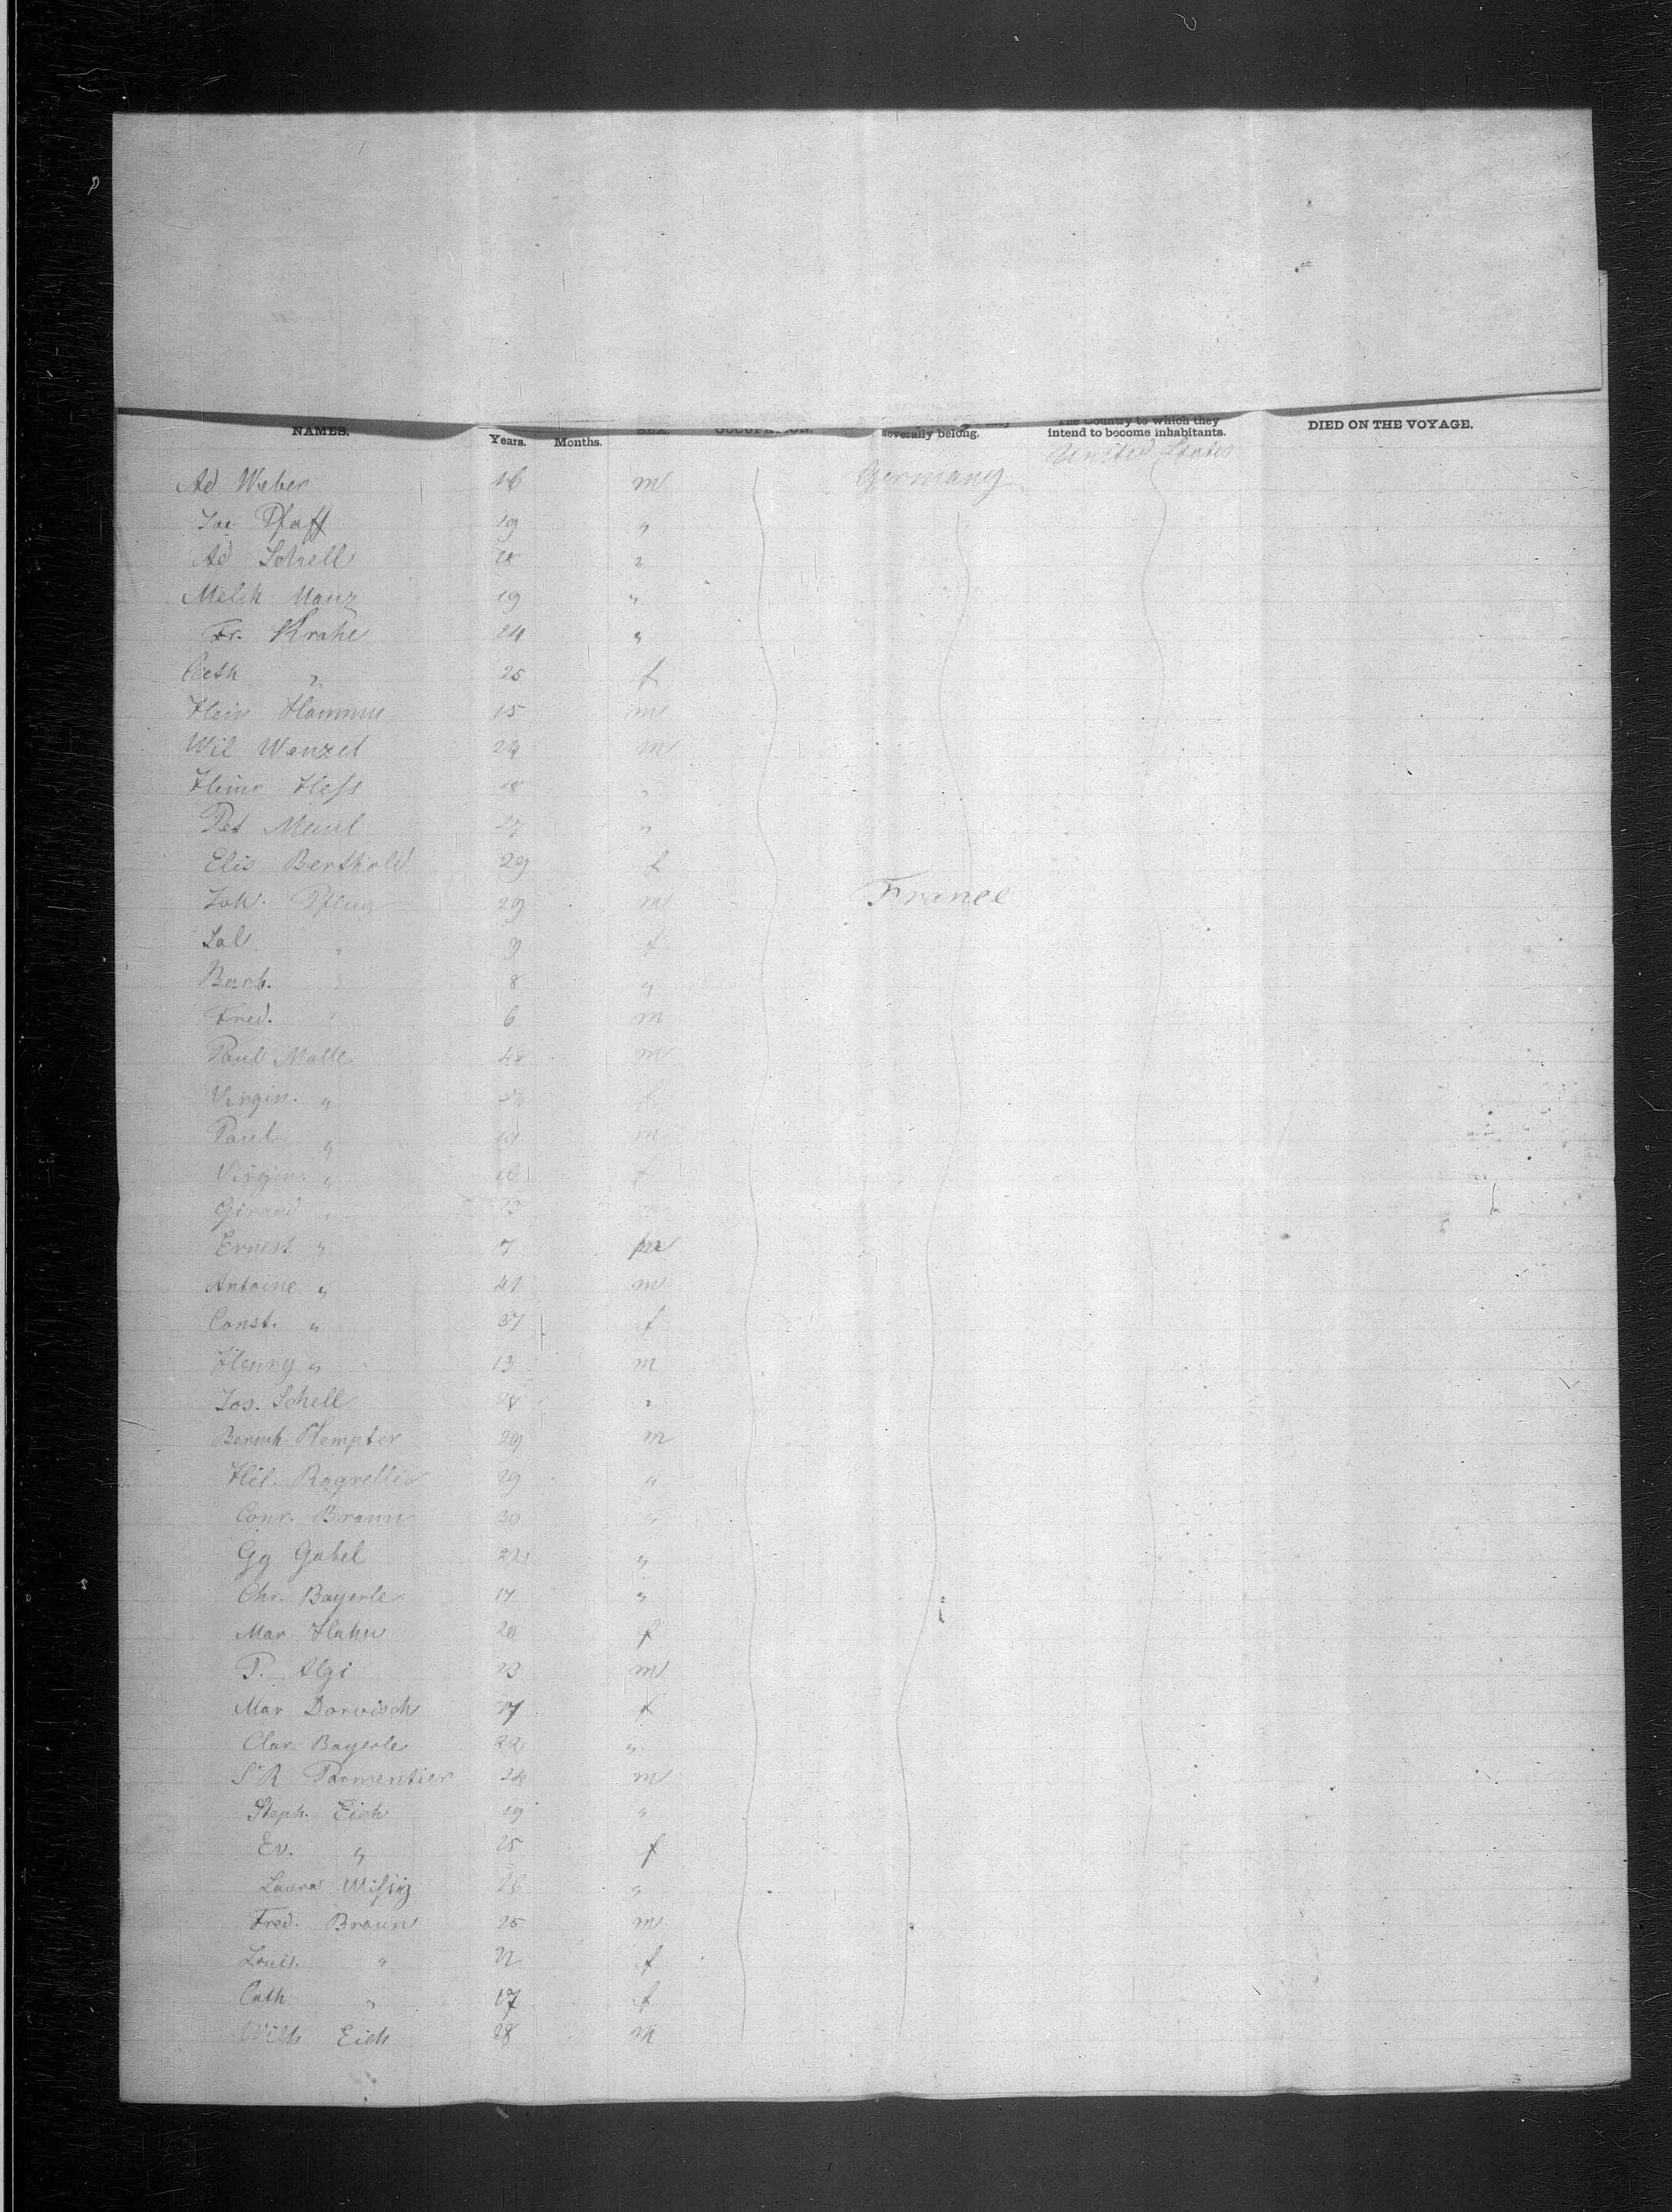 NAMES. Years. Months. SEX. OCCUPATION. severally belong. The Country to which they intend to become inhabitants. DIED ON THE VOYAGE.
United States
Ad Weber 16 m Germany
Jac Pfaff 19 "
Ad Schell 28 "
Melch Manz 19 "
Fr. Krahe 24 "
" 25 f
Hein 15 m
Wil Wenzel 24 m
Heinr Hess 18 "
Pet 27 "
Elis Berthold 29 f
Joh. Pflug 29 m France
Sal " 9 f
Barb. " 8 "
Fred. " 6 m
Paul Matte 48 m
Virgin. " f
Paul " m
Virgin. " 16 f
Girard " 13 m
Ernest " 7 m
Antoine " 41 m
Const. " 37 f
Henry " 13 m
Jos. Schell "
Kempter 29 m
29 "
Conr. Braun 30 "
Gg Gabel 22 "
Chr. Bayerle 17 "
Mar Hahn 20 f
P. Algi 23 m
Mar 37 f
Clar. Bayerle 22 "
Parmentier 24 m
Steph. Eich 19 "
Ev. " 25 f
Laura "
Fred. Braun 25 m
Louis. " f
Cath " 17 f
Wilh Eich 28 m